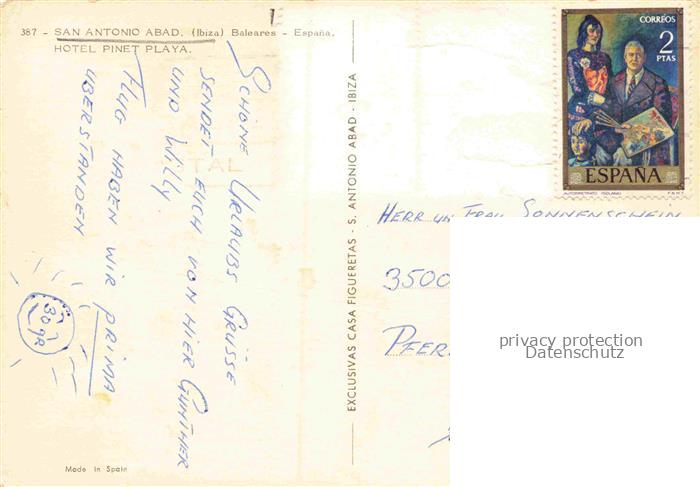 387 - SAN ANTONIO ABAD. (Ibiza) Baleares - España.
HOTEL PINET PLAYA.
SCHÖNE URLAUBS GRÜSSE
SENDET EUCH VON HIER GÜNTHER
UND WILLY.
FLUG HABEN WIR PRIMA
ÜBERSTANDEN
30 gr
Made in Spain
EXCLUSIVAS CASA FIGUERETAS - S. ANTONIO ABAD - IBIZA
CORREOS
2
PTAS
ESPAÑA
AUTORRETRATO (SOLANA) F.N.M.T.
HERR UN FRAU SONNENSCHEIN
3500
PFER
privacy protection
Datenschutz